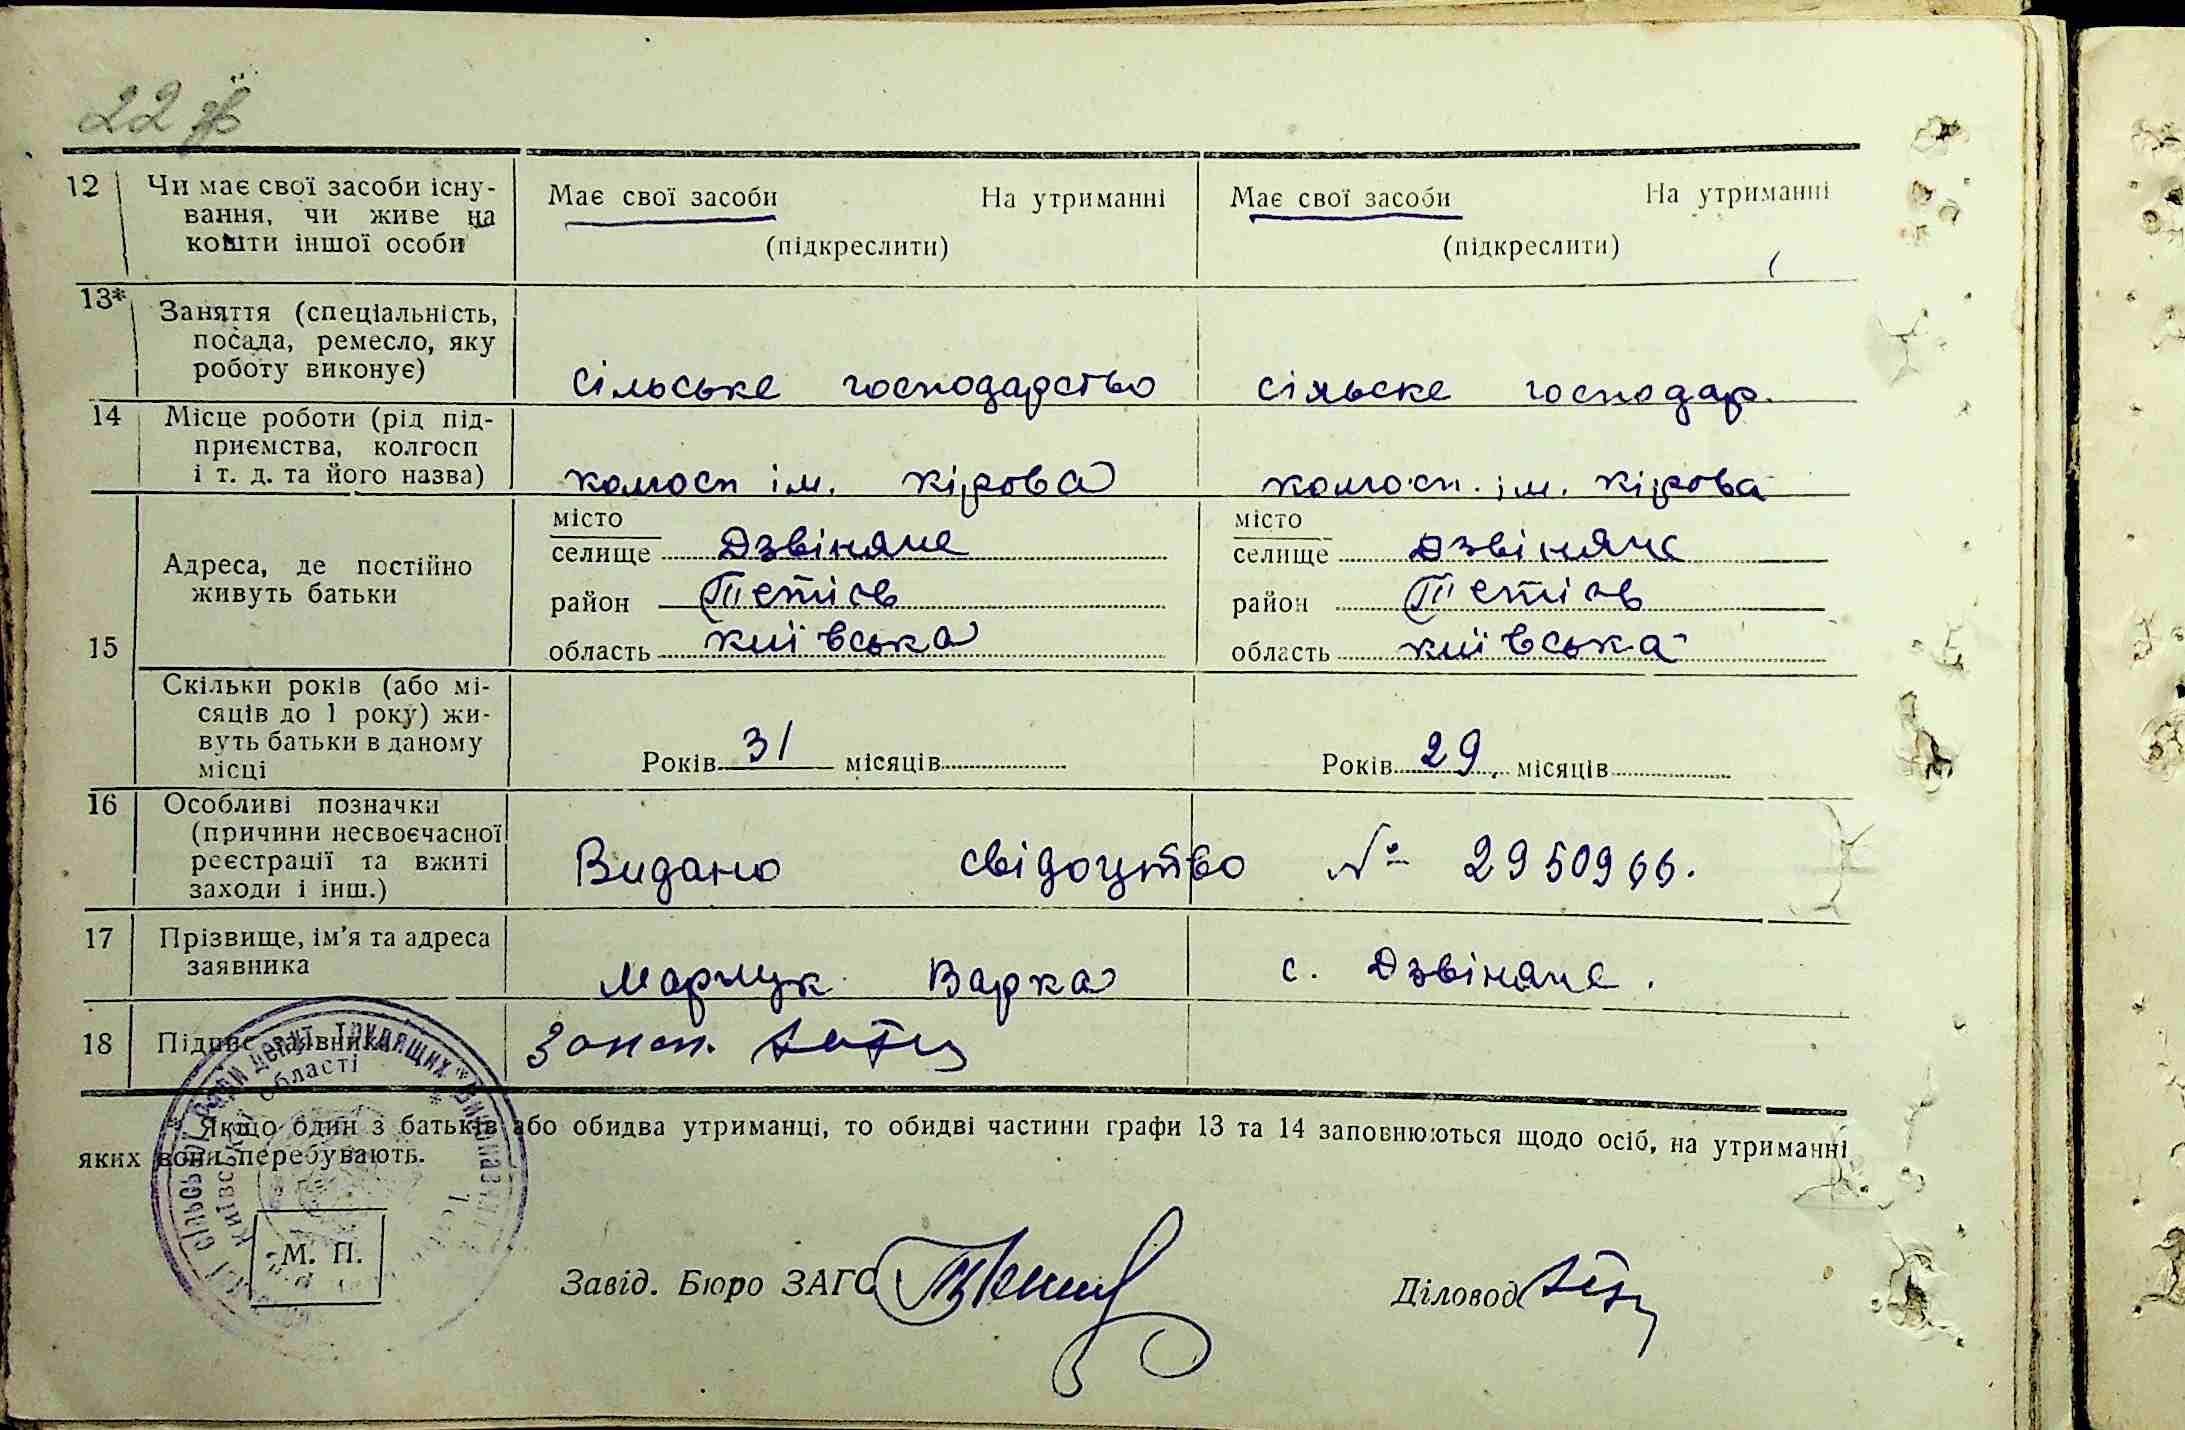 22
12 Чи має свої засоби існу- Має свої засоби На утриманні Має свої засоби На утриманні
вання, чи живе на
кошти іншої особи (підкреслити) (підкреслити)
13* Заняття (спеціальність,
посада, ремесло, яку
роботу виконує) сільське господарство сільске господар.
14 Місце роботи (рід під-
приємства, колгосп
і т. д. та його назва) колгосп ім. кірова колгосп. ім. кірова
місто місто
селище Дзвіняче селище Дзвіняче
Адреса, де постійно
живуть батьки район Тетіїв район Тетіїв
15 область київська область київська
Скільки років (або мі-
сяців до 1 року) жи-
вуть батьки в даному
місці Років 31 місяців Років 29. місяців
16 Особливі позначки
(причини несвоєчасної
реєстрації та вжиті
заходи і інш.) Видано свідоцтво № 2950966.
17 Прізвище, ім'я та адреса
заявника Варка с. Дзвіняче.
18 Підпис заявника
Якщо один з батьків або обидва утриманці, то обидві частини графи 13 та 14 заповнюються щодо осіб, на утриманні
яких вони перебувають.
М. П.
Завід. Бюро ЗАГС Діловод
сільської Ради депут. трудящих
Київської області